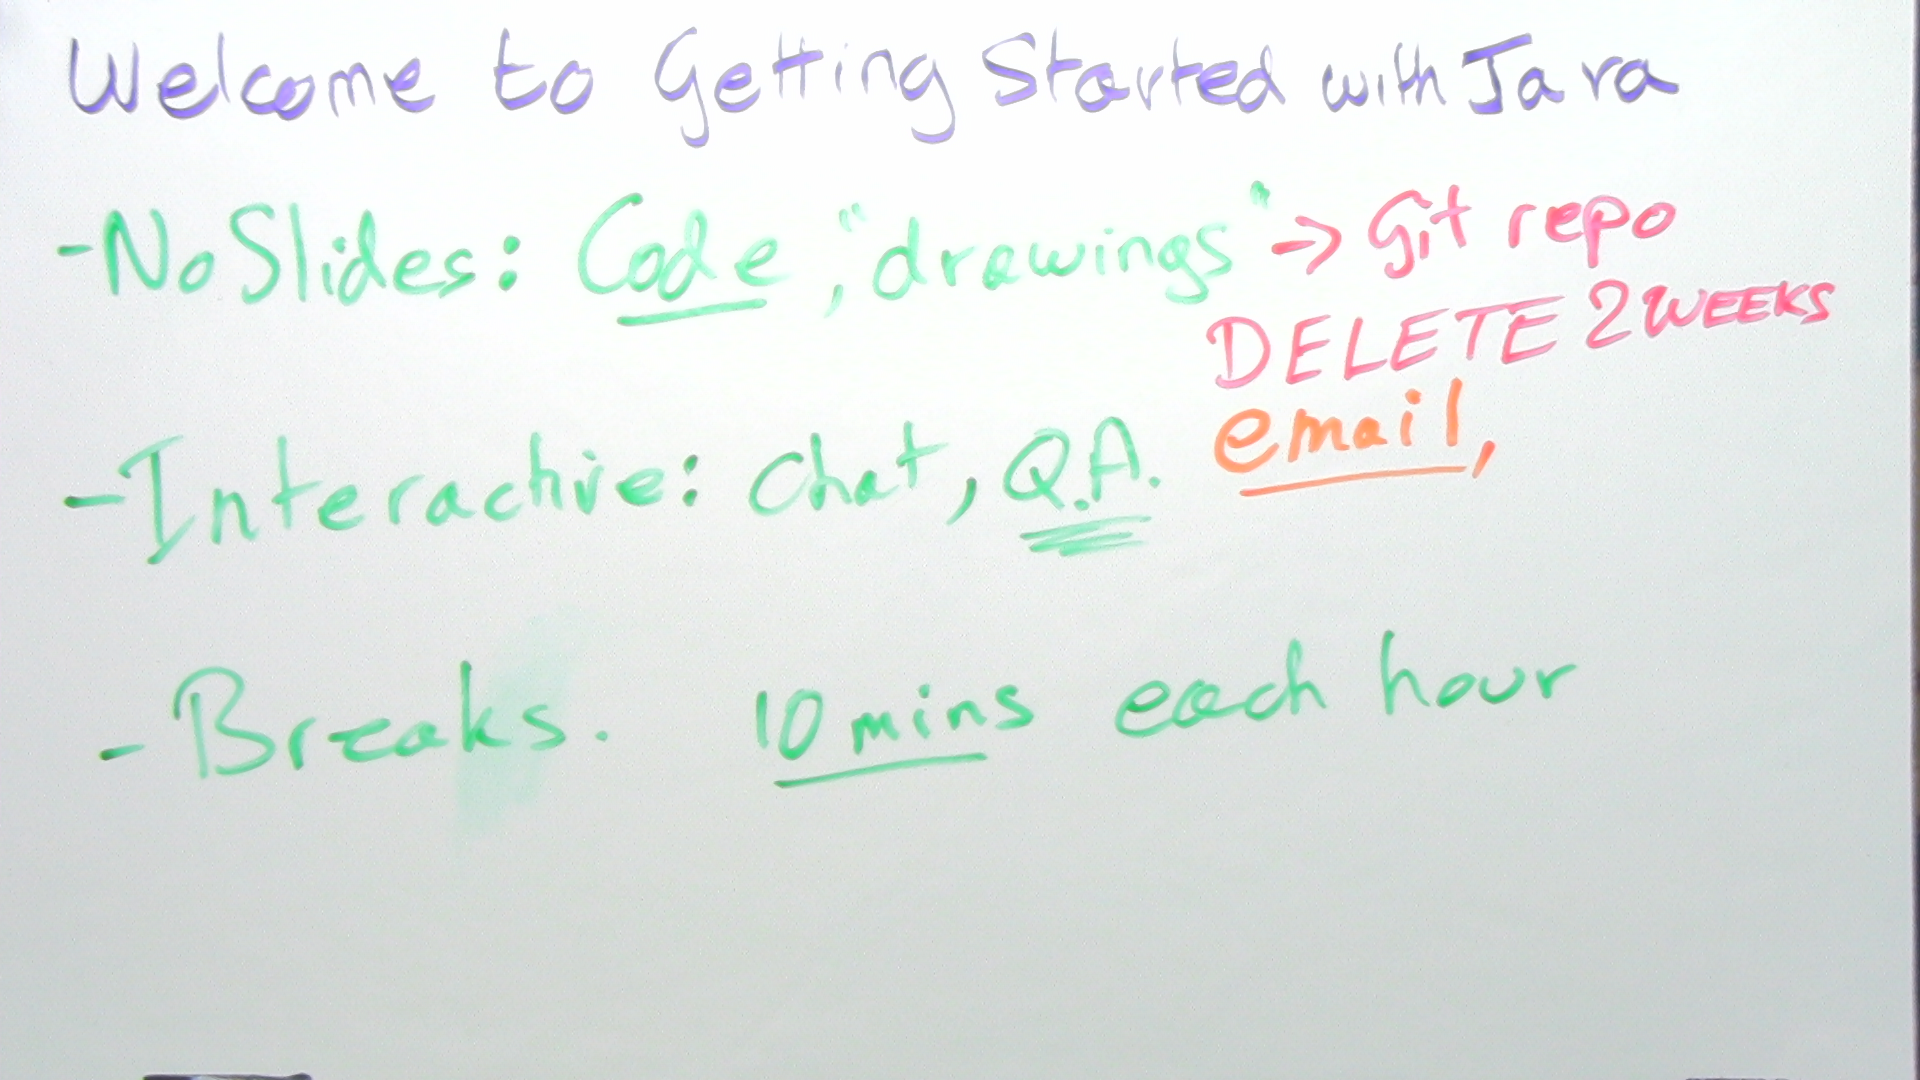 Welcome to Getting Started with Java
- No Slides: Code, "drawings" -> Git repo
DELETE 2 WEEKS
- Interactive: Chat, Q.A. email,
- Breaks. 10 mins each hour